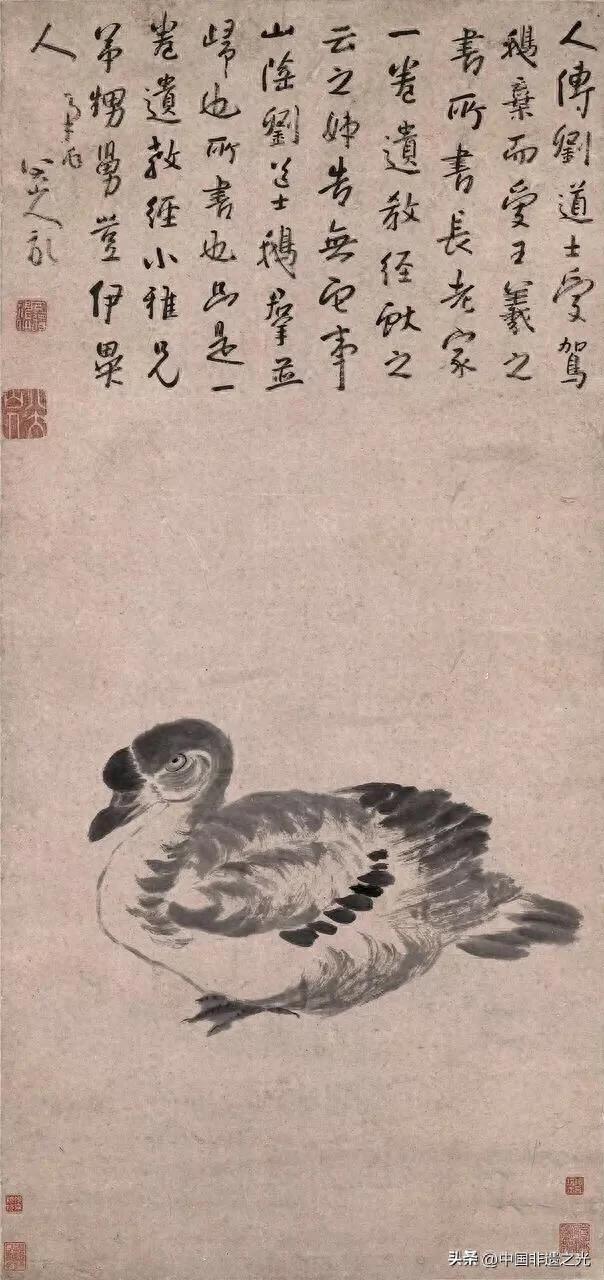 人傳劉道士愛駕
鵝棄而愛王羲之
書所書長老家
一卷遺教經獻之
云之姊告無它事
山陰劉道士鵝羣並
歸也所書也只是一
卷遺教經小雅兄
弟甥舅豈伊異
人
八大山人
頭条 @中国非遗之光